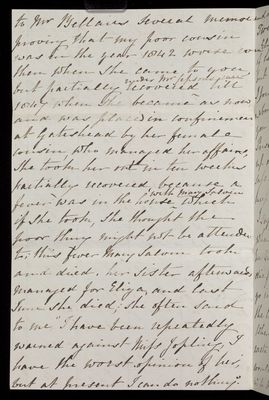 to Mr Bellairs several
proving that my poor cousin
was in the year 1842 worse
then when she came to you
but partially recovered till
1847 when she became as now
and was placed in confinement
at gateshead by her female
cousin, who managed her affairs,
She took her out in ten weeks
partially recovered because a
fever was in the house which
with Mary Salvin
if she took, she thought the
poor thing might not be attended
to: this fever Mary Salvin took
and died, her sister afterwards
managed for Eliza, and last
June she died; she often said
to me "I have been repeatedly
warned against Miss Jopling, I
have the worst opinion of her,
but at present I can do nothing"